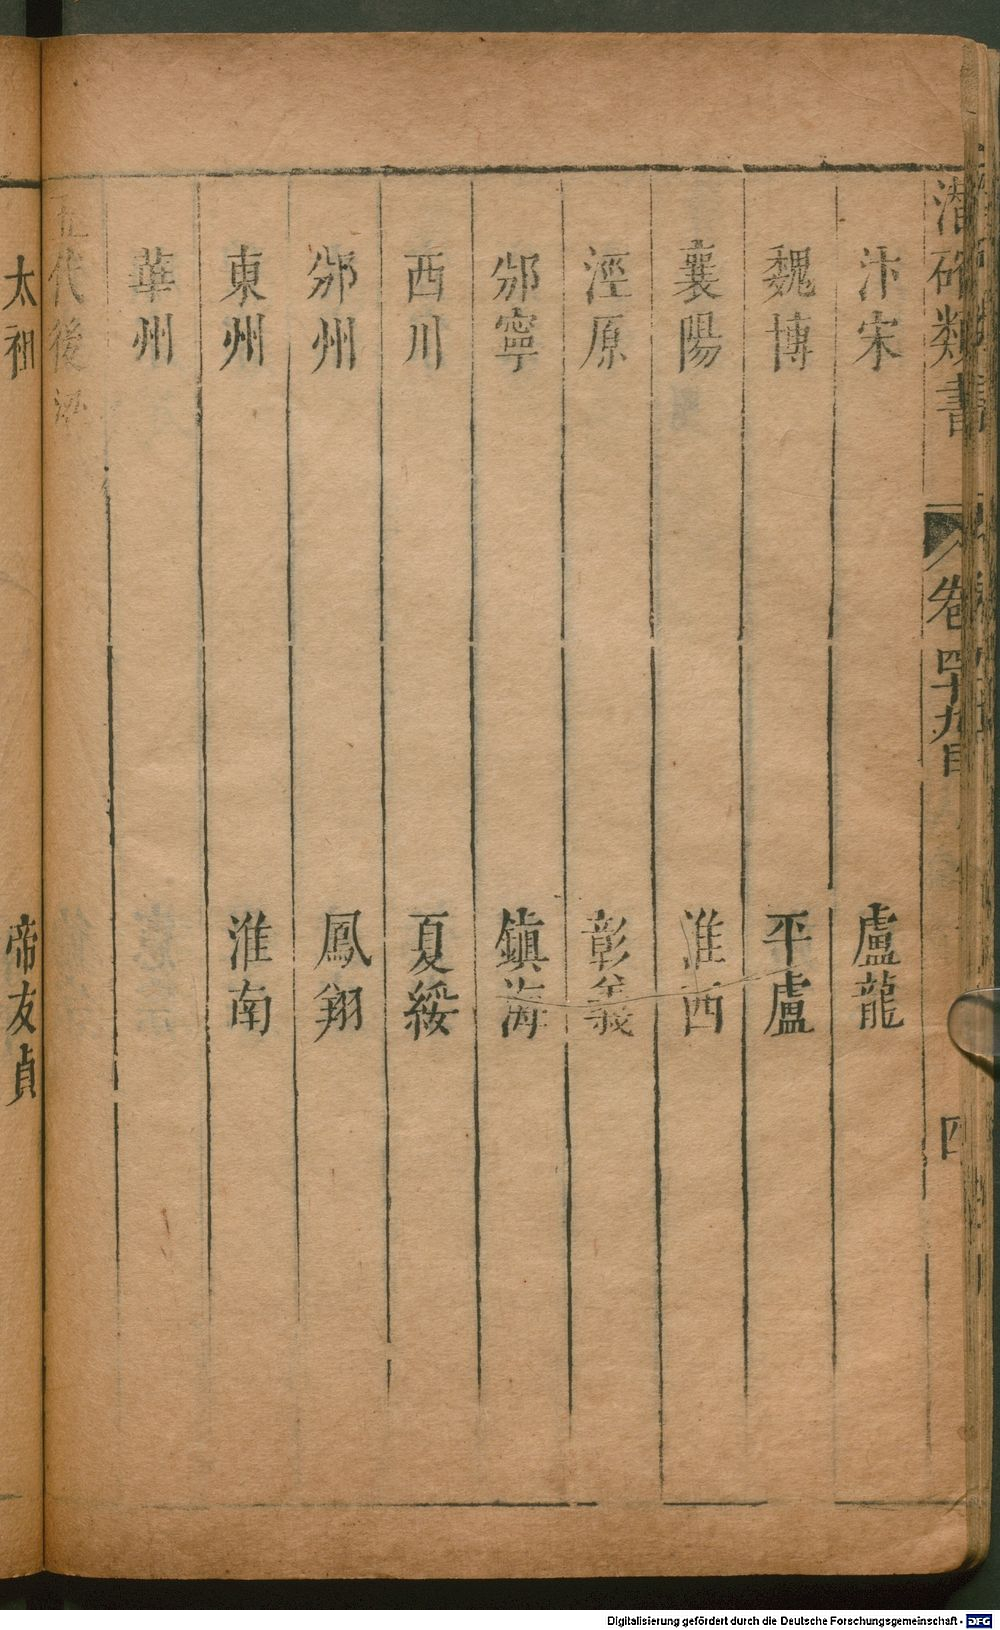 潛確類書 卷四十九目 四
汴宋 盧龍
魏博 平盧
襄陽 淮西
涇原 彰義
邠寧 鎮海
西川 夏綏
邠州 鳳翔
東州 淮南
華州
五代後梁
太祖 帝友貞
Digitalisierung gefördert durch die Deutsche Forschungsgemeinschaft - DFG